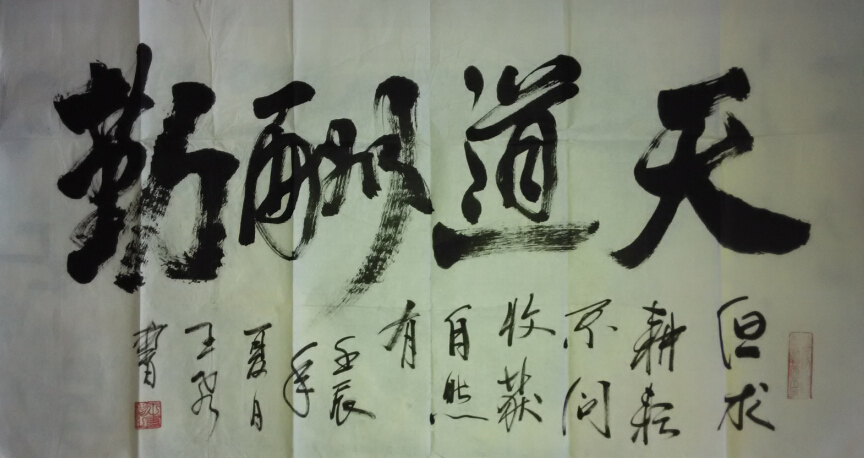 天道酬勤
但求
耕耘
不问
收获
自然
有
壬辰
年
夏月
王
書